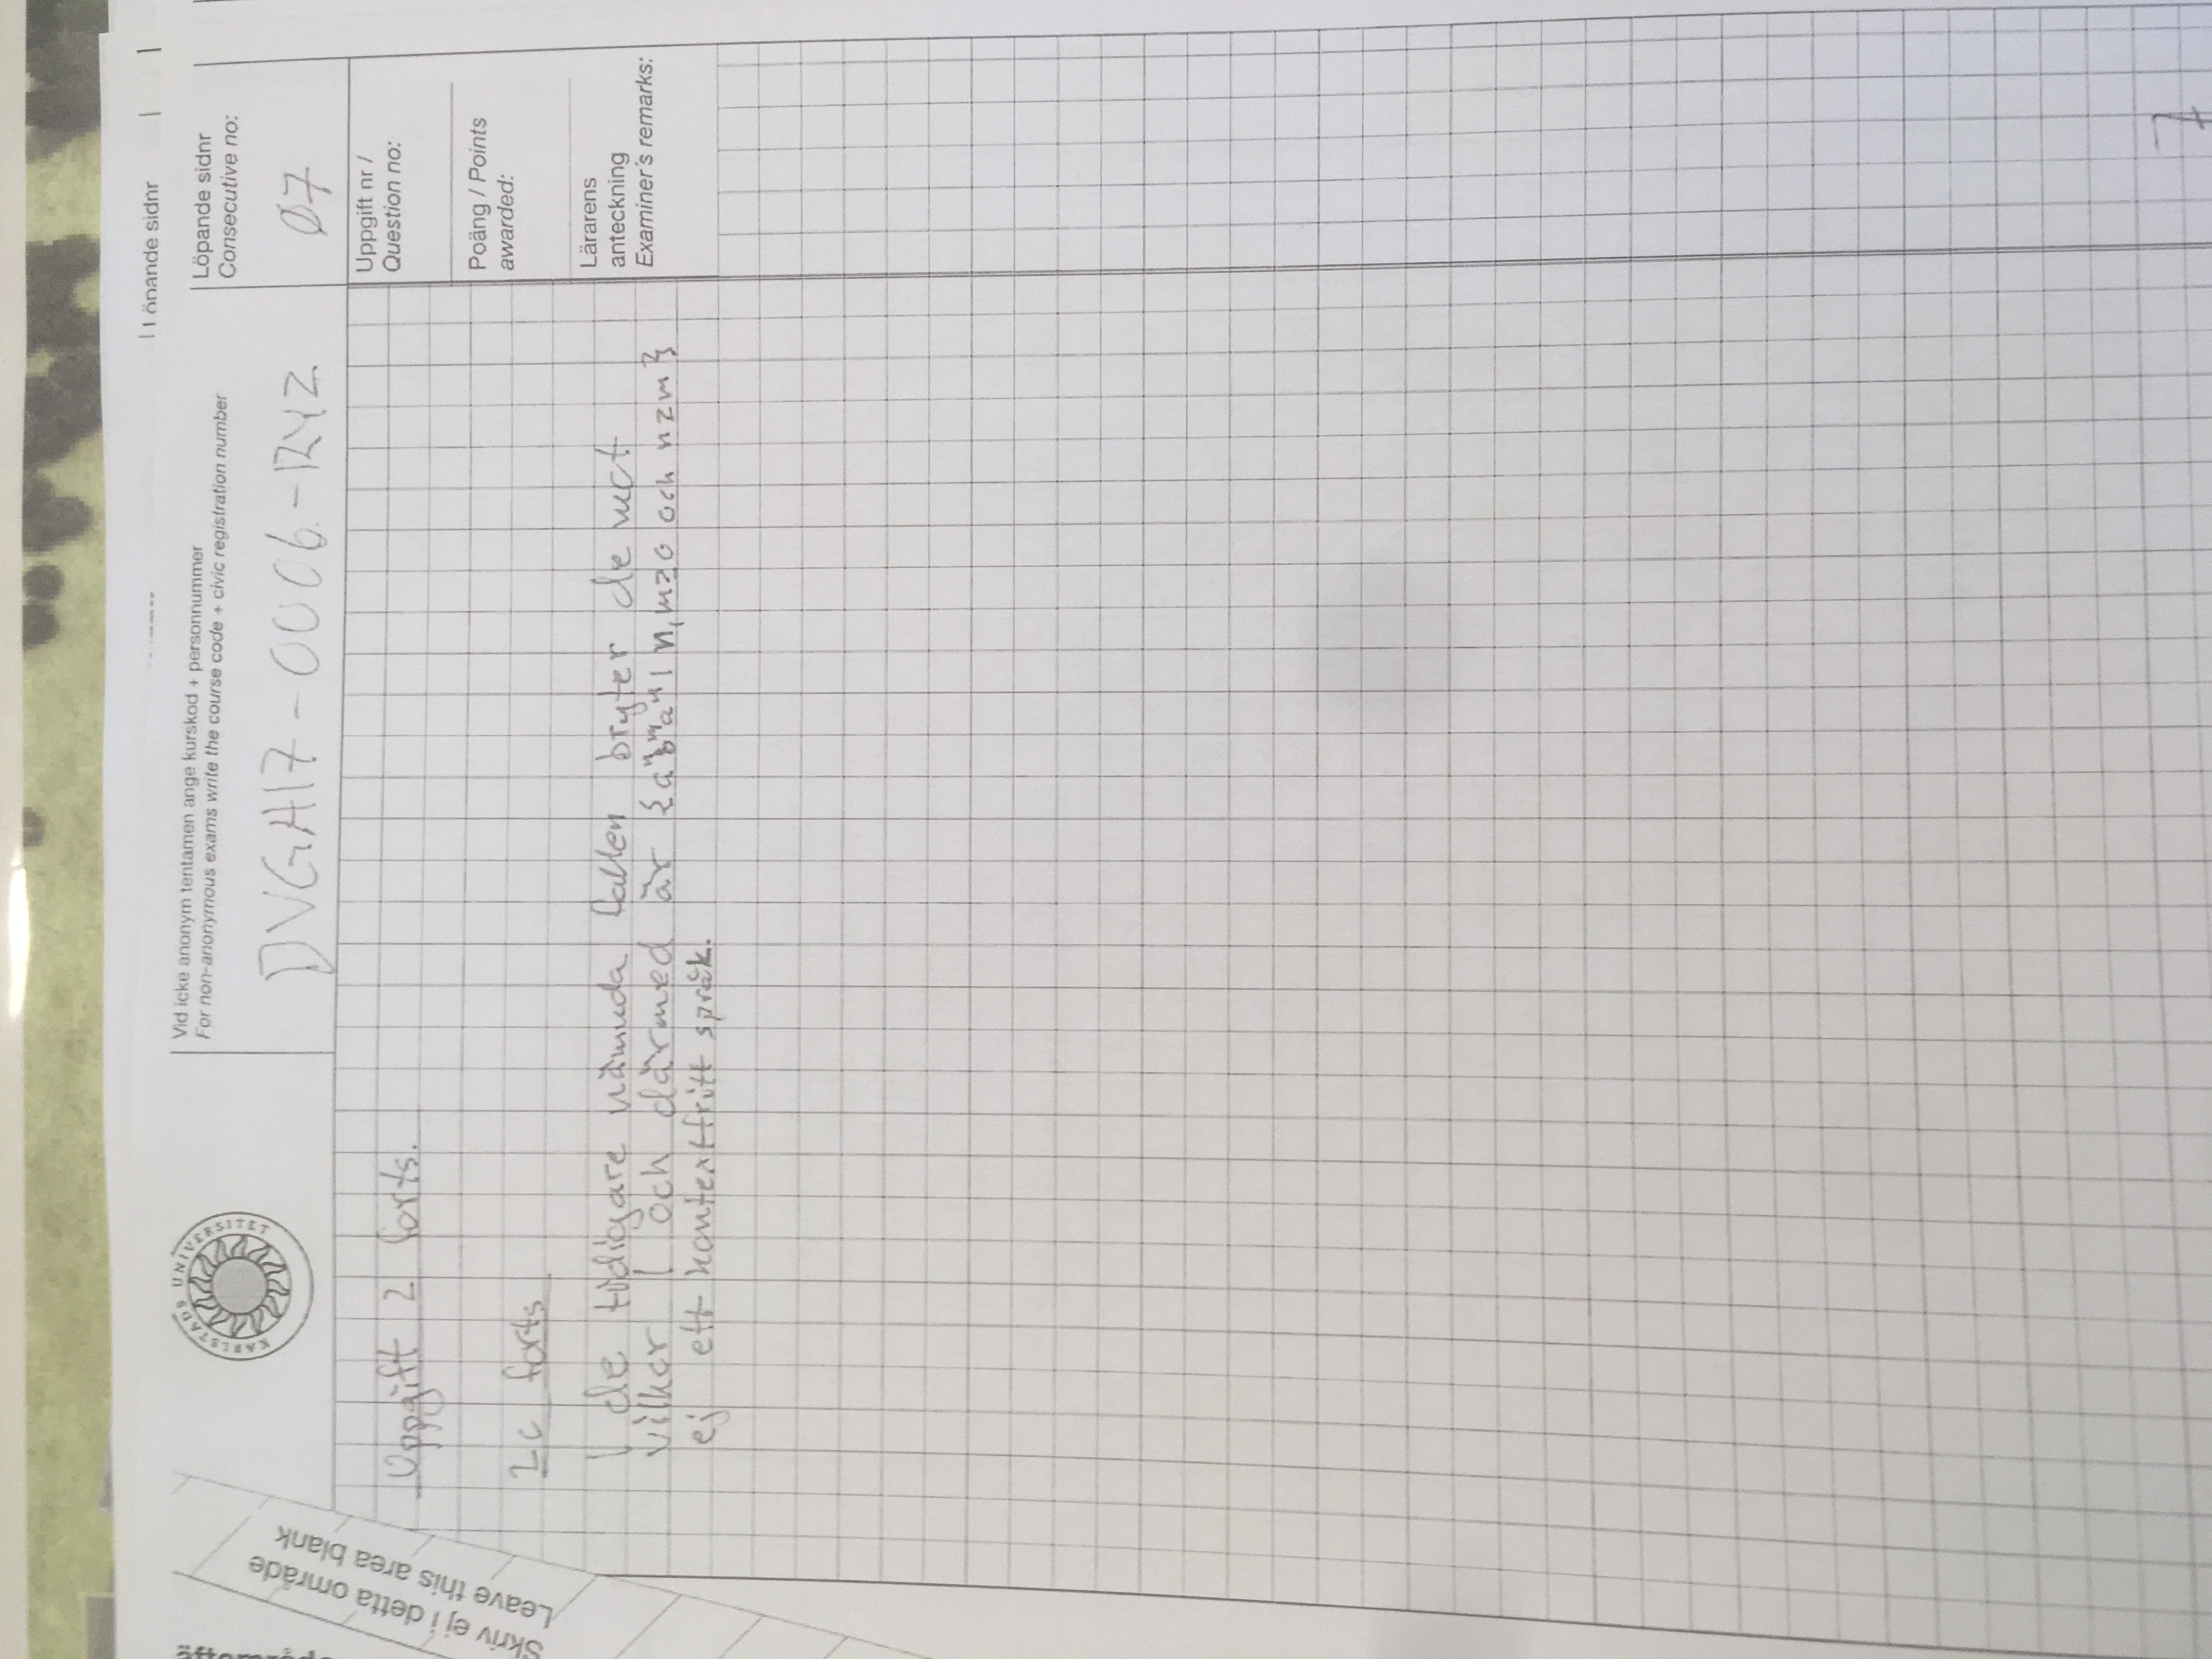 Löpande sidnr
KARLSTADS UNIVERSITET
Vid icke anonym tentamen ange kurskod + personnummer
For non-anonymous exams write the course code + civic registration number
DVGA17-0006-RYZ
Löpande sidnr
Consecutive no:
Ø7
Skriv ej i detta område
Leave this area blank
Uppgift nr /
Question no:
Poäng / Points
awarded:
Lärarens
anteckning
Examiner's remarks:
Uppgift 2 forts.
2c forts
I de tidigare nämnda fallen bryter de mot
vilkor 1 och därmed är {aⁿbᵐaⁿ | n,m≥0 och n≥m}
ej ett kontextfritt språk.
7